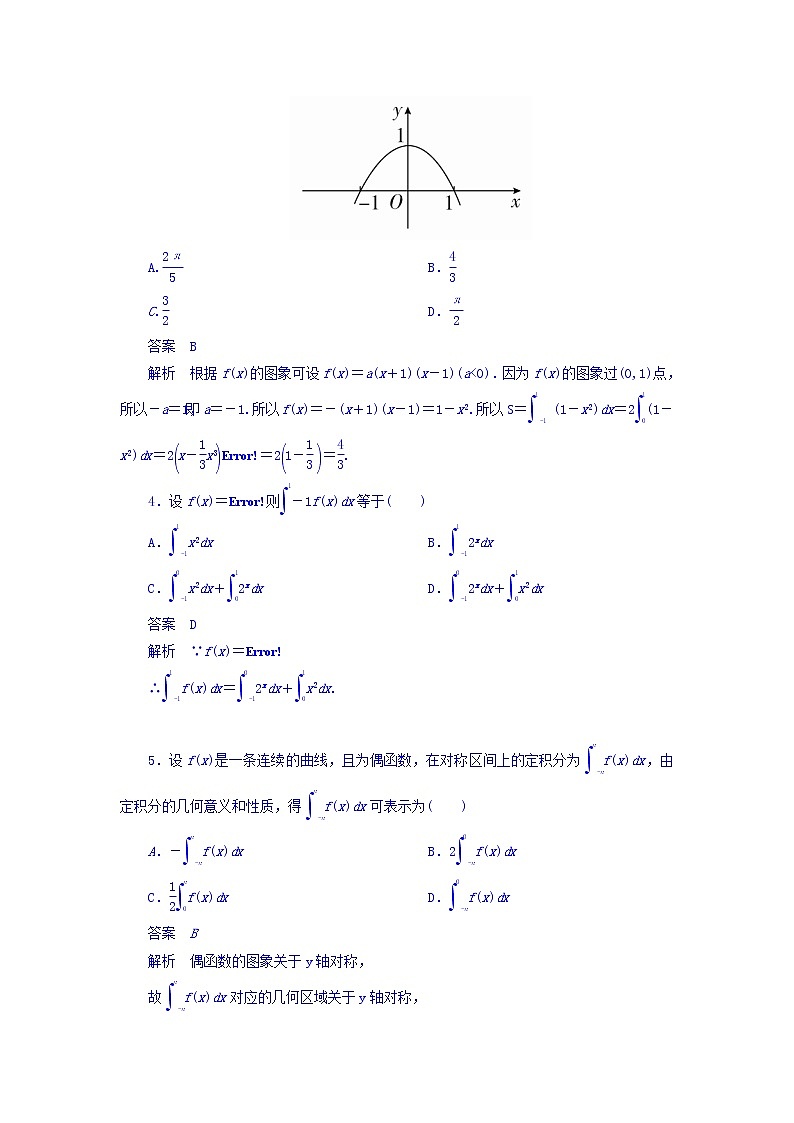 y
1
−1 O 1 x
A.2π/5 B.4/3
C.3/2 D.π/2
答案 B
解析 根据 f(x)的图象可设 f(x)=a(x+1)(x-1)(a<0).因为 f(x)的图象过(0,1)点,
所以-a=1,即 a=-1.所以 f(x)=-(x+1)(x-1)=1-x².所以 S=∫₋₁¹ (1-x²)dx=2∫₀¹(1-
x²)dx=2(x-1/3x³)Error!=2(1-1/3)=4/3.
4.设 f(x)=Error!则∫¹-1f(x)dx 等于( )
A.∫₋₁¹x²dx B.∫₋₁¹2ˣdx
C.∫₋₁⁰x²dx+∫₀¹2ˣdx D.∫₋₁⁰2ˣdx+∫₀¹x²dx
答案 D
解析 ∵f(x)=Error!
∴∫₋₁¹f(x)dx=∫₋₁⁰2ˣdx+∫₀¹x²dx.
5.设 f(x)是一条连续的曲线,且为偶函数,在对称区间上的定积分为 ∫f(x)dx,由
定积分的几何意义和性质,得 ∫f(x)dx 可表示为( )
A.-∫f(x)dx B.2∫f(x)dx
C.1/2∫f(x)dx D.∫f(x)dx
答案 B
解析 偶函数的图象关于 y 轴对称,
故 ∫f(x)dx 对应的几何区域关于 y 轴对称,